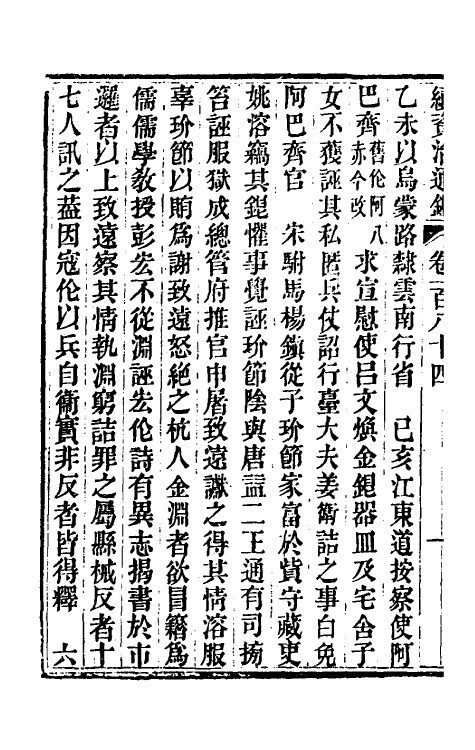 續資治通鑑 卷一百八十四
乙未以烏蒙路隸雲南行省 己亥江東道按察使阿
巴齊舊伦阿八赤今改求宣慰使呂文煥金銀器皿及宅舍子
女不獲誣其私匿兵仗詔行臺大夫姜衛詰之事白免
阿巴齊官 宋駙馬楊鎭從子玠節家富於貲守藏吏
姚溶竊其銀懼事覺誣玠節陰與唐諡二王通有司搒
笞誣服獄成總管府推官申屠致遠讞之得其情溶服
辜玠節以賄爲謝致遠怒絕之杭人金淵者欲冒籍爲
儒儒學敎授彭宏不從淵誣宏伦詩有異志揭書於市
邏者以上致遠察其情執淵窮詰罪之屬縣械反者十
七人訊之葢因寇伦以兵自衞實非反者皆得釋 六